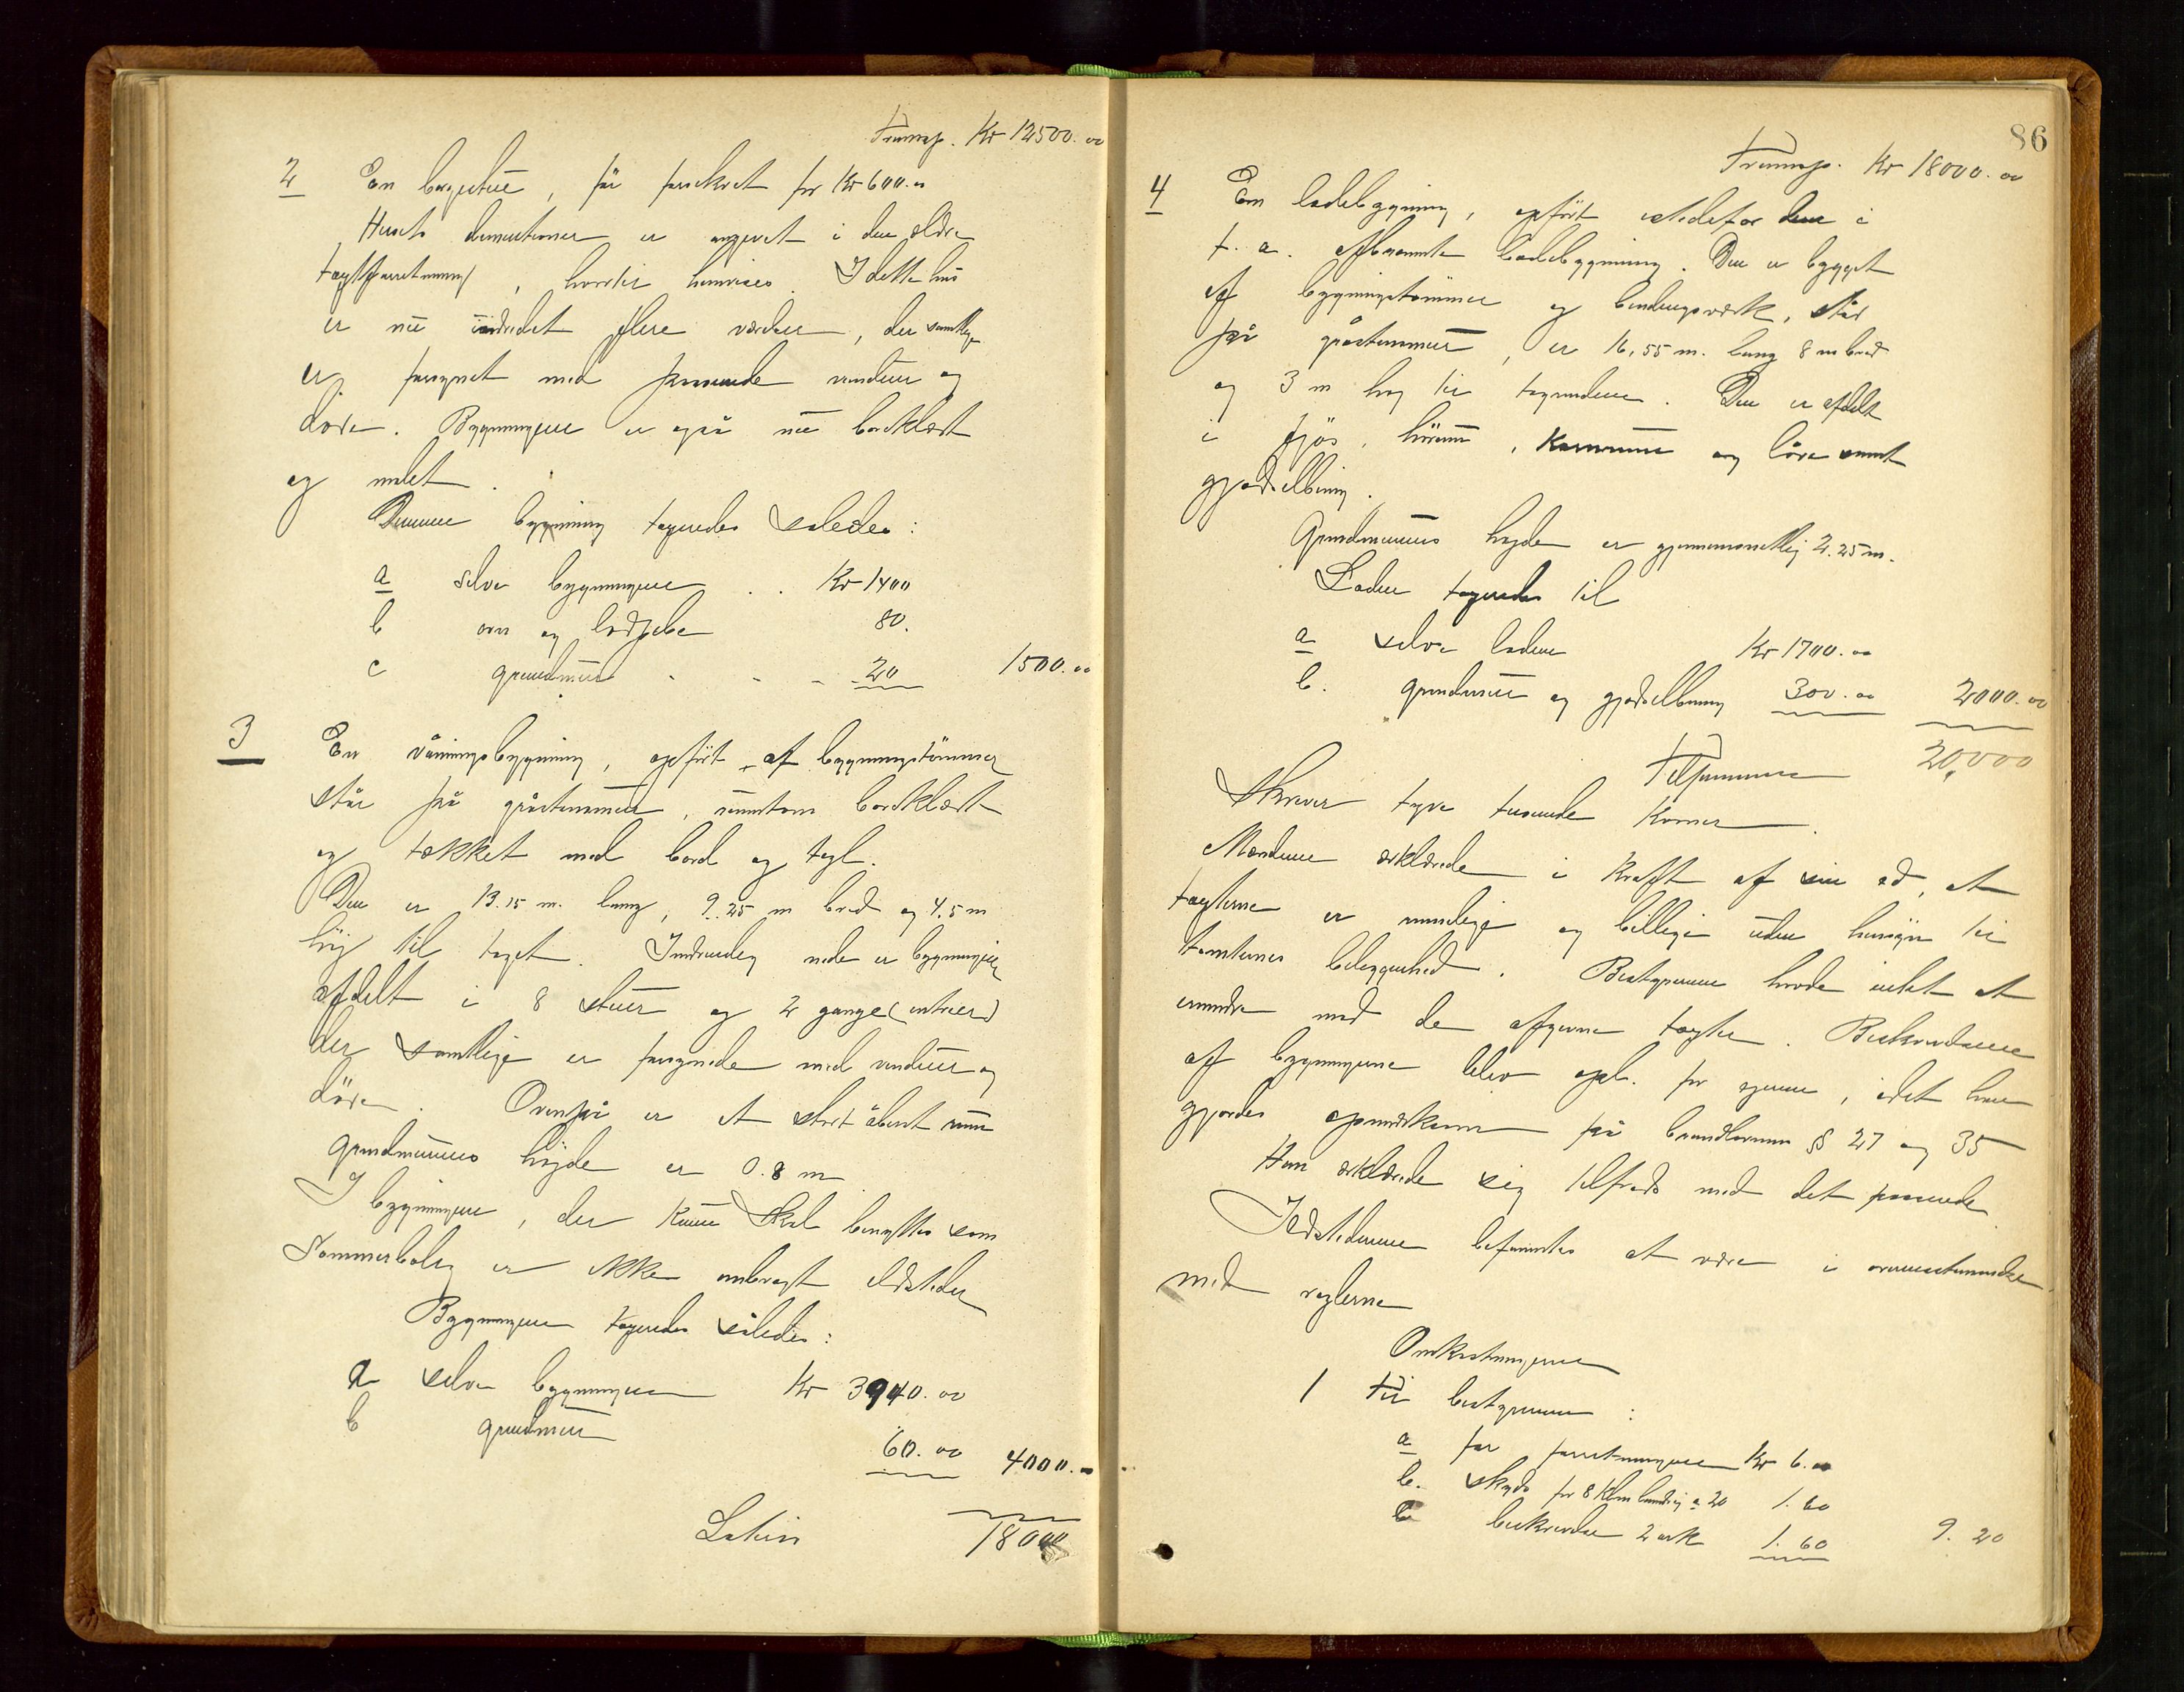 Transp. Kr 12500.00
2 En bryggestue, før forsikret for Kr 600.00
Husets dimentioner er angivet i den ældre
taxtforretning, hvortil henvises. I dette hus
er nu indredet flere værelser, der samtlige
er forsynet med passende vinduer og
døre. Bygningen er også nu bordklædt
og malet.
Denne bygning taxeredes således:
a selve bygningen . . Kr 1400
b ovn og ildpibe 80.
c grundmur - - - 20 1500.00
3 En våningsbygning, opført af bygningstømmer
står på gråstensmur, rundtom bordklædt
og tækket med bord og tegl.
Den er 13.15 m. lang, 9.25 m bred og 4,5 m
høj til taget. Indvendig nede er bygningen
afdelt i 8 stuer og 2 gange (entreer)
der samtlige er forsynede med vinduer og
døre. Ovenpå er et stort åbent rum
Grundmurens højde er 0.8 m
I bygningen, der kun skal benyttes som
Sommerbolig er ikke anbragt ildsteder
Bygningen taxeredes således:
a selve bygningen Kr 3940.00
b grundmur
60.00 4000.00
Latus 18000
86
Transp. Kr 18000.00
4 En ladebygning, opført istedetfor den i
f. a. afbrændte ladebygning. Den er bygget
af bygningstømmer og bindingsværk, står
på gråstensmur, er 16,55 m. lang 8 m bred
og 3 m høj til tagrenderne. Den er afdelt
i fjøs, hørum, kornrum og låve samt
gjødselbing.
Grundmurens højde er gjennemsnitlig 2.25 m.
Laden taxeredes til
a selve laden Kr 1700.00
b. grundmur og gjødselbing 300.00 2000.00
Tilsammen 20,000
Skriver tyve tusende Kroner.
Mændene erklærede i kraft af sin ed, at
taxterne er rimelige og billige uden hensyn til
tomternes beliggenhed. Bestyreren havde intet at
erindre mod de afgivne taxter. Beskrivelsene
af bygningerne blev opl. for ejeren, idet han
gjordes opmærksom på brandlovens §§ 27 og 35
Han erklærede sig tilfreds med det passerede
Ildstederne befandtes at være i overensstemmelse
med reglerne
Omkostningerne
1 til bestyreren:
a for forretningen Kr 6.00
b. skyds for 8 klm landvej a 20 1.60
c beskrivelse 2 ark 1.60 9.20